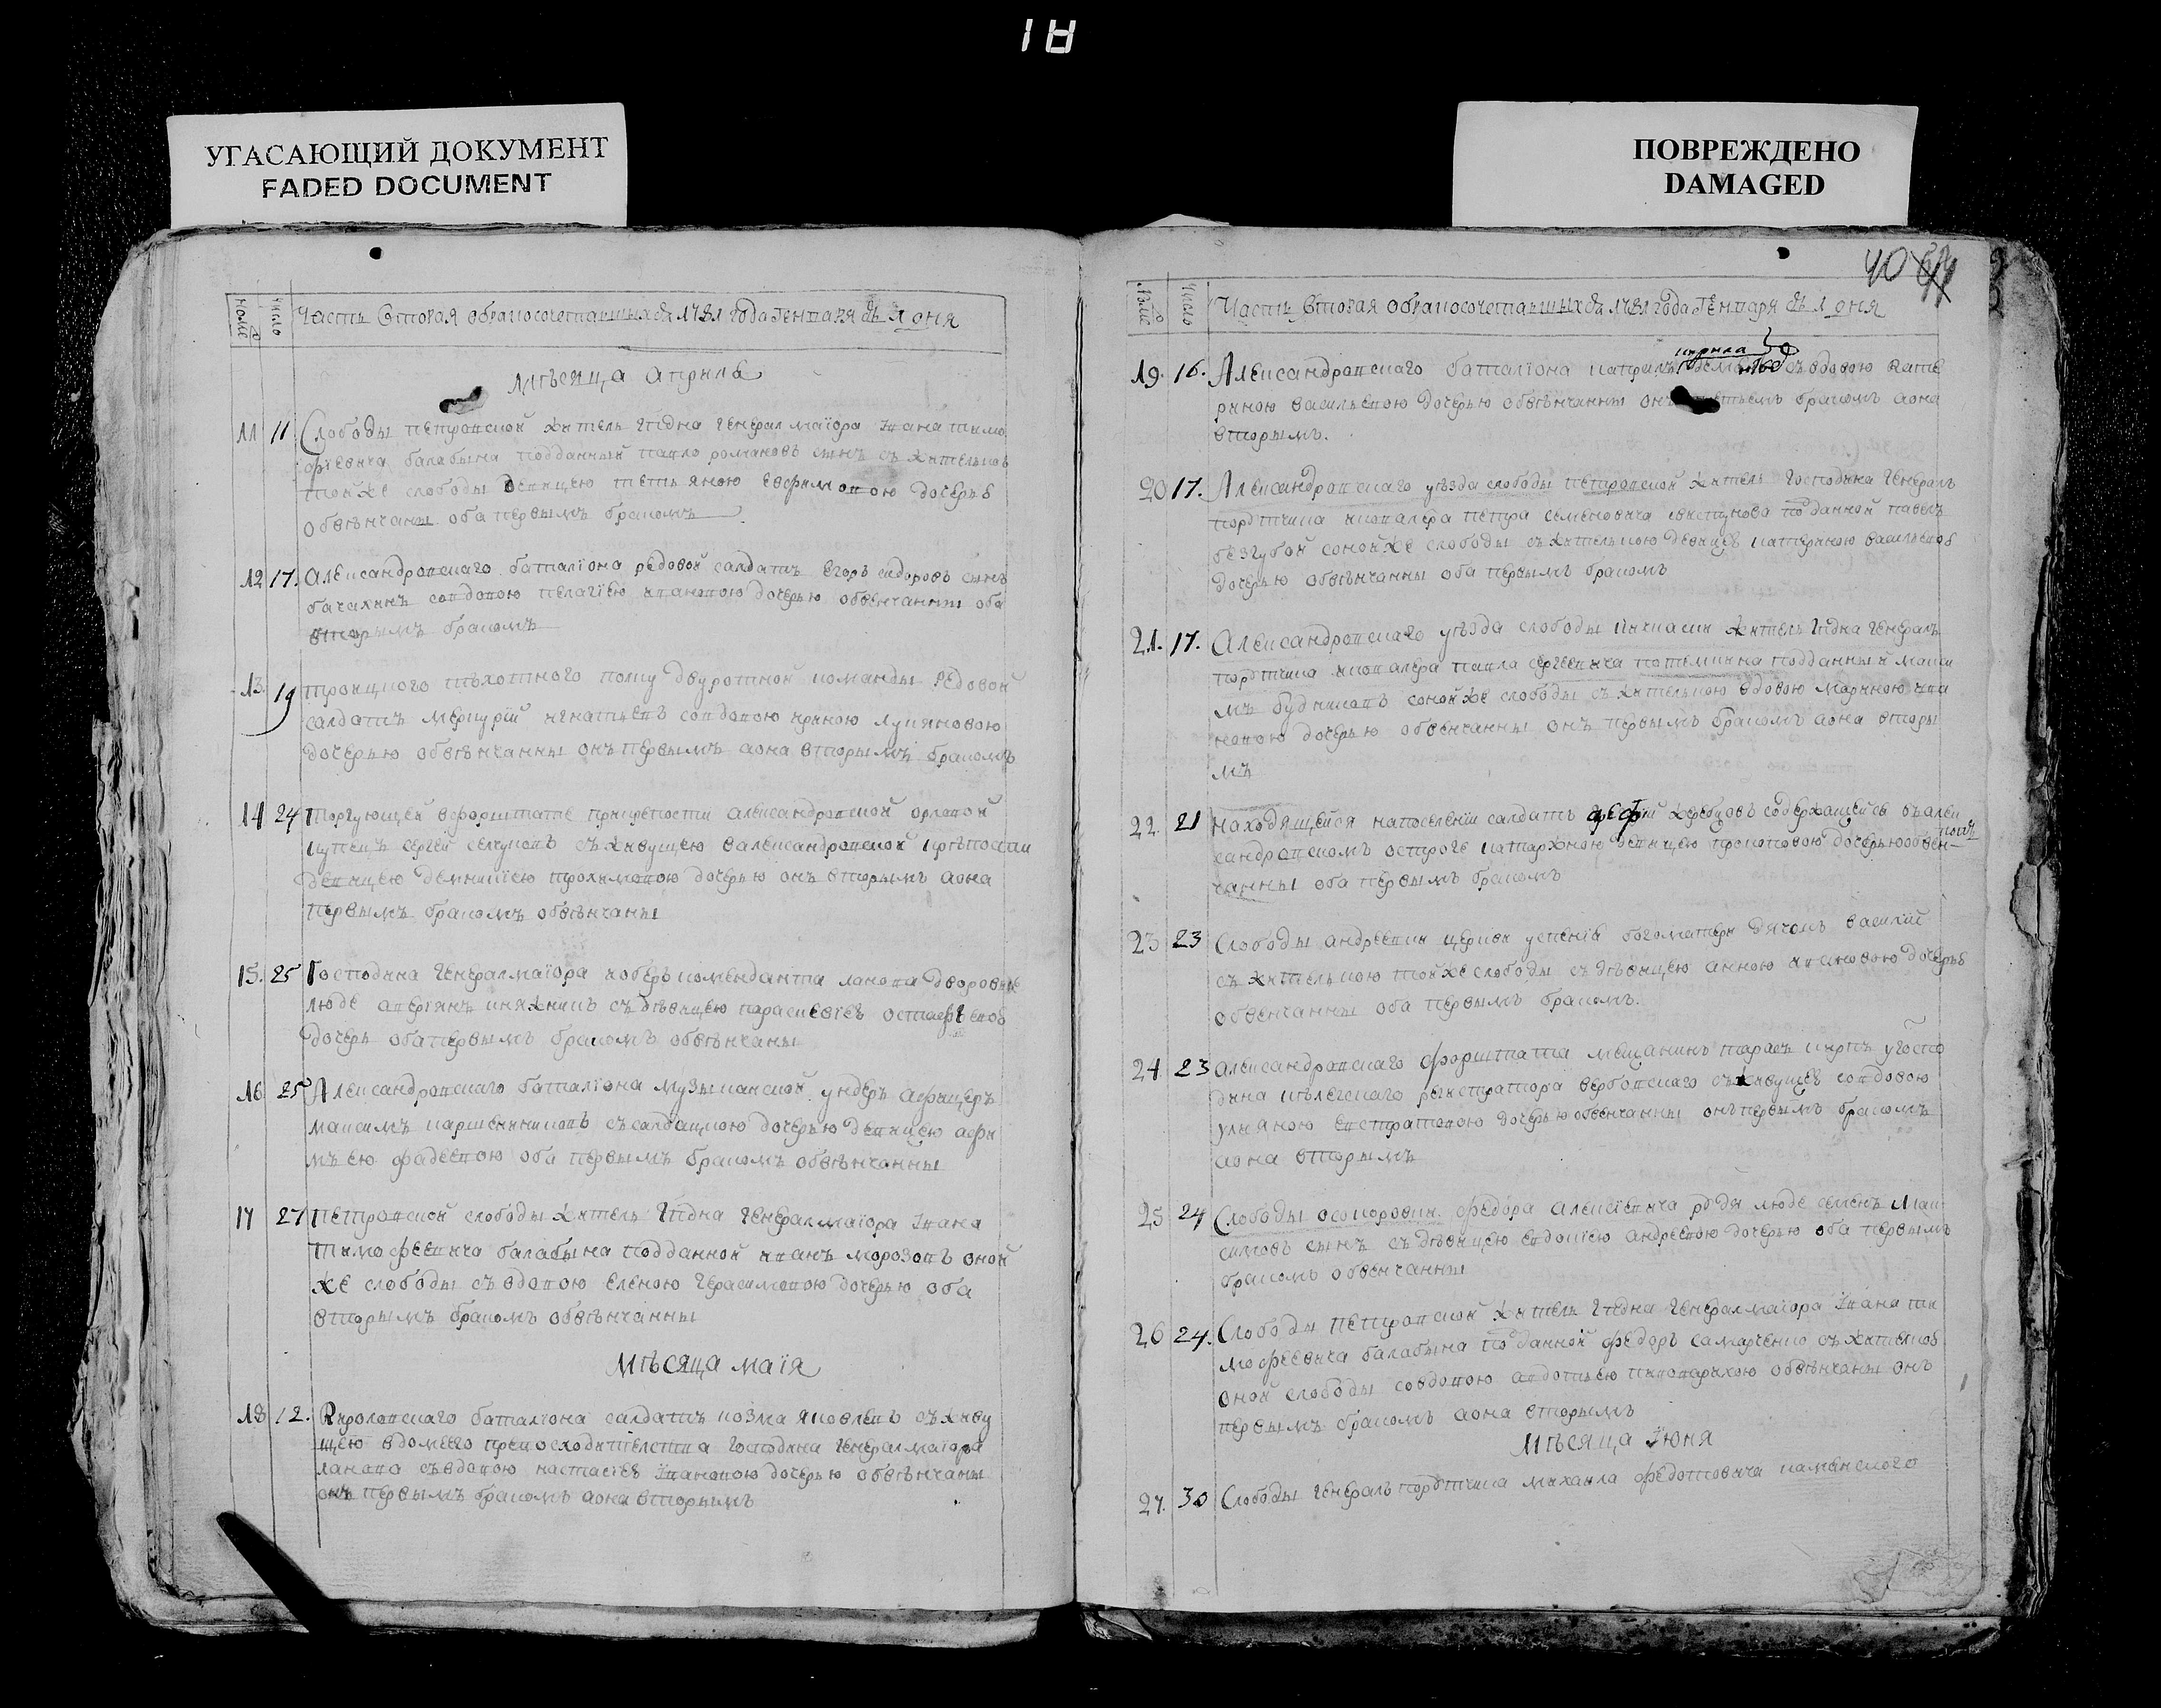 18
УГАСАЮЩИЙ ДОКУМЕНТ
FADED DOCUMENT
ПОВРЕЖДЕНО
DAMAGED
число
Часть вторая обракосочетавшихся 1781 года Генваря съ 1 дня
Мѣсяца априля
11 11 Слободы петровской житель гпдна генерал маіора Івана тимо
фѣевича балабына подданный павло романовъ сынъ съ жителькою
тойже слободы девицею тетьяною евфимовою дочерью
обвѣнчаны оба первымъ бракомъ
12 17. Александровскаго баталіона редовой салдатъ егоръ сидоровъ сынъ
совдовою пелагіею ивановою дочерью обвенчанны оба
вторымъ бракомъ
13 19 троицкого пѣхотного полку двуротной команды редовой
салдатъ меркурій игнатьевъ совдовою ириною лукяновою
дочерью обвѣнчанны онъ первымъ аона вторымъ бракомъ
14 24 торгующей вфорштате прикрепости александровской орловой
купецъ сергей съ живущею валександровской крѣпости
девицею дочерью онъ вторымъ аона
первымъ бракомъ обвѣнчаны
15. 25 Господина генералмаіора иоберъ коменданта ланова дворовые
люде аверіянъ княжнинъ съ дѣвицею параскевіею остафьевою
дочерь оба первымъ бракомъ обвѣнчаны
16 25 Александровскаго баталіона музыканской ундеръ афицеръ
максимъ съ салдацкою дочерью девицею афи
мъею фадеевою оба первымъ бракомъ обвѣнчанны
17 27 петровской слободы житель гпдна генералмаіора Івана
тимофеевича балабына подданной иванъ морозовъ оной
же слободы съ вдовою еленою герасимовою дочерью оба
вторымъ бракомъ обвѣнчанны
Мѣсяца маія
18 12. баталіона салдатъ козма яковлевъ съ живу
щею вдомеего превосходителства господина генералмаіора
ланова съ вдовою настасіею Івановою дочерью обвѣнчаны
онъ первымъ бракомъ аона вторымъ
40
число
Часть вторая обракосочетавшихся 1781 года Генваря съ 1 дня
19. 16. Александровскаго баталіона съ вдовою кате
риною васильевою дочерью обвѣнчанны онъ бракомъ аона
вторымъ.
20 17. Александровскаго уѣзда слободы петровской житель господина генералъ
порутчика икавалера петра семеновича подданной павелъ
безгубой сонойже слободы съ жителькою девицею катериною васильевою
дочерью обвѣнчанны оба первымъ бракомъ
21. 17. Александровскаго уѣзда слободы житель гпдна генералъ
портчика икавалера павла сергеевича потемкина подданный макси
мъ сонойже слободы съ жителькою вдовою мариною ива
новою дочерью обвенчанны онъ первымъ бракомъ аона вторы
мъ
22. 21 находящейся напоселеніи салдатъ жеребцовъ содержащейсе въ алек
сандровскомъ остроге девицею дочерью обвен-
чанны оба первымъ бракомъ
23 23 слободы андреевки церкви успенія богоматери дячокъ василій
съ жителькою тойже слободы съ дѣвицею анною ивановою дочерью
обвенчанны оба первымъ бракомъ.
24 23 александровскаго форштата мещанинъ тарасъ угоспо
дина регистратора съ живущею совдовою
ульяною евстратовою дочерью обвенчанны онъ первымъ бракомъ
аона вторымъ
25 24 Слободы осокоровки федора алексіевича люде семенъ мак
симовъ сынъ съ дѣвицею евдокіею андреевою дочерью оба первымъ
бракомъ обвенчанны
26 24. Слободы петровской житель гпдна генералмаіора Івана ти
мофеевича балабына подданной федоръ самарченко съ жителкою
оной слободы совдовою авдотьею обвѣнчаны онъ
первымъ бракомъ аона вторымъ
Мѣсяца Іюня
27. 30 Слободы генералъ портчика михаила федотовича каменского